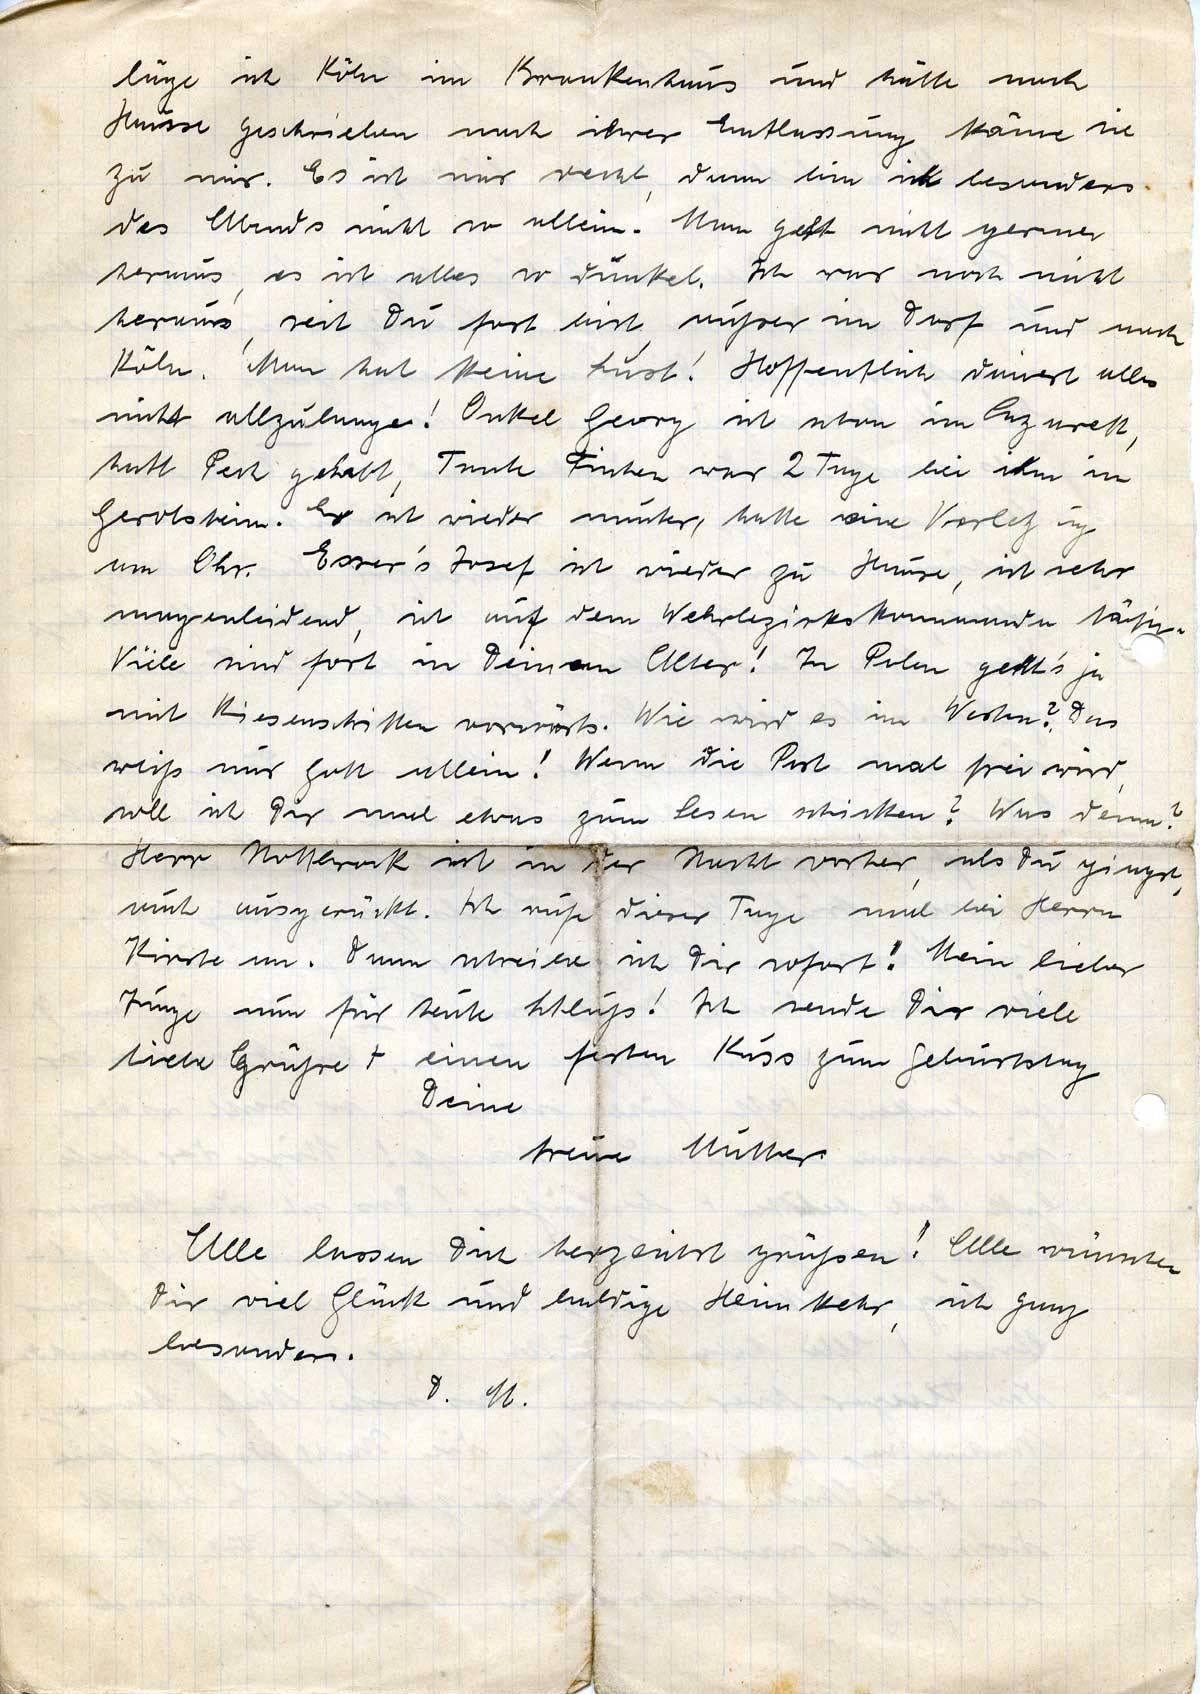 läge ich Köln im Krankenhaus und hätte nach
Hause geschrieben nach ihrer Entlassung käme sie
zu mir. Es ist mir recht, dann bin ich besonders
des Abends nicht so allein. Man geht nicht gerne
heraus, es ist alles so dunkel. Ich war noch nicht
heraus, seit Du fort bist, außer im Dorf und nach
Köln. Man hat keine Lust! Hoffentlich dauert alles
nicht allzulange! Onkel Georg ist schon im Lazarett,
hatt Pech gehabt, Tante Finchen war 2 Tage bei ihm in
Gerolstein. Er ist wieder munter, hatte eine Verletzung
am Ohr. Esser's Josef ist wieder zu Hause, ist sehr
magenleidend, ist auf dem Wehrbezirkskommando tätig.
Viele sind fort in Deinem Alter! In Polen geht's ja
mit Riesenschritten vorwärts. Wie wird es im Westen? Das
weiß nur Gott allein! Wenn die Post mal frei wird,
soll ich Dir mal etwas zum Lesen schicken? Was denn?
Herr Nottbrock ist in der Nacht vorher, als Du gingst,
auch ausgerückt. Ich rufe dieser Tage mal bei Herrn
Kirste an. Dann schreibe ich Dir sofort! Mein lieber
Junge nun für heute Schluß! Ich sende Dir viele
liebe Grüße + einen festen Kuss zum Geburtstag
Deine
treue Mutter
Alle lassen Dich herzlichst grüßen! Alle wünschen
Dir viel Glück und baldige Heimkehr, ich ganz
besonders.
D. M.